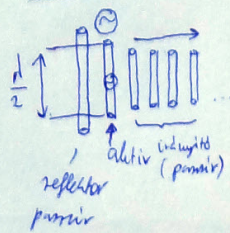 λ/2
aktív
irányító
(passzív)
reflektor
passzív